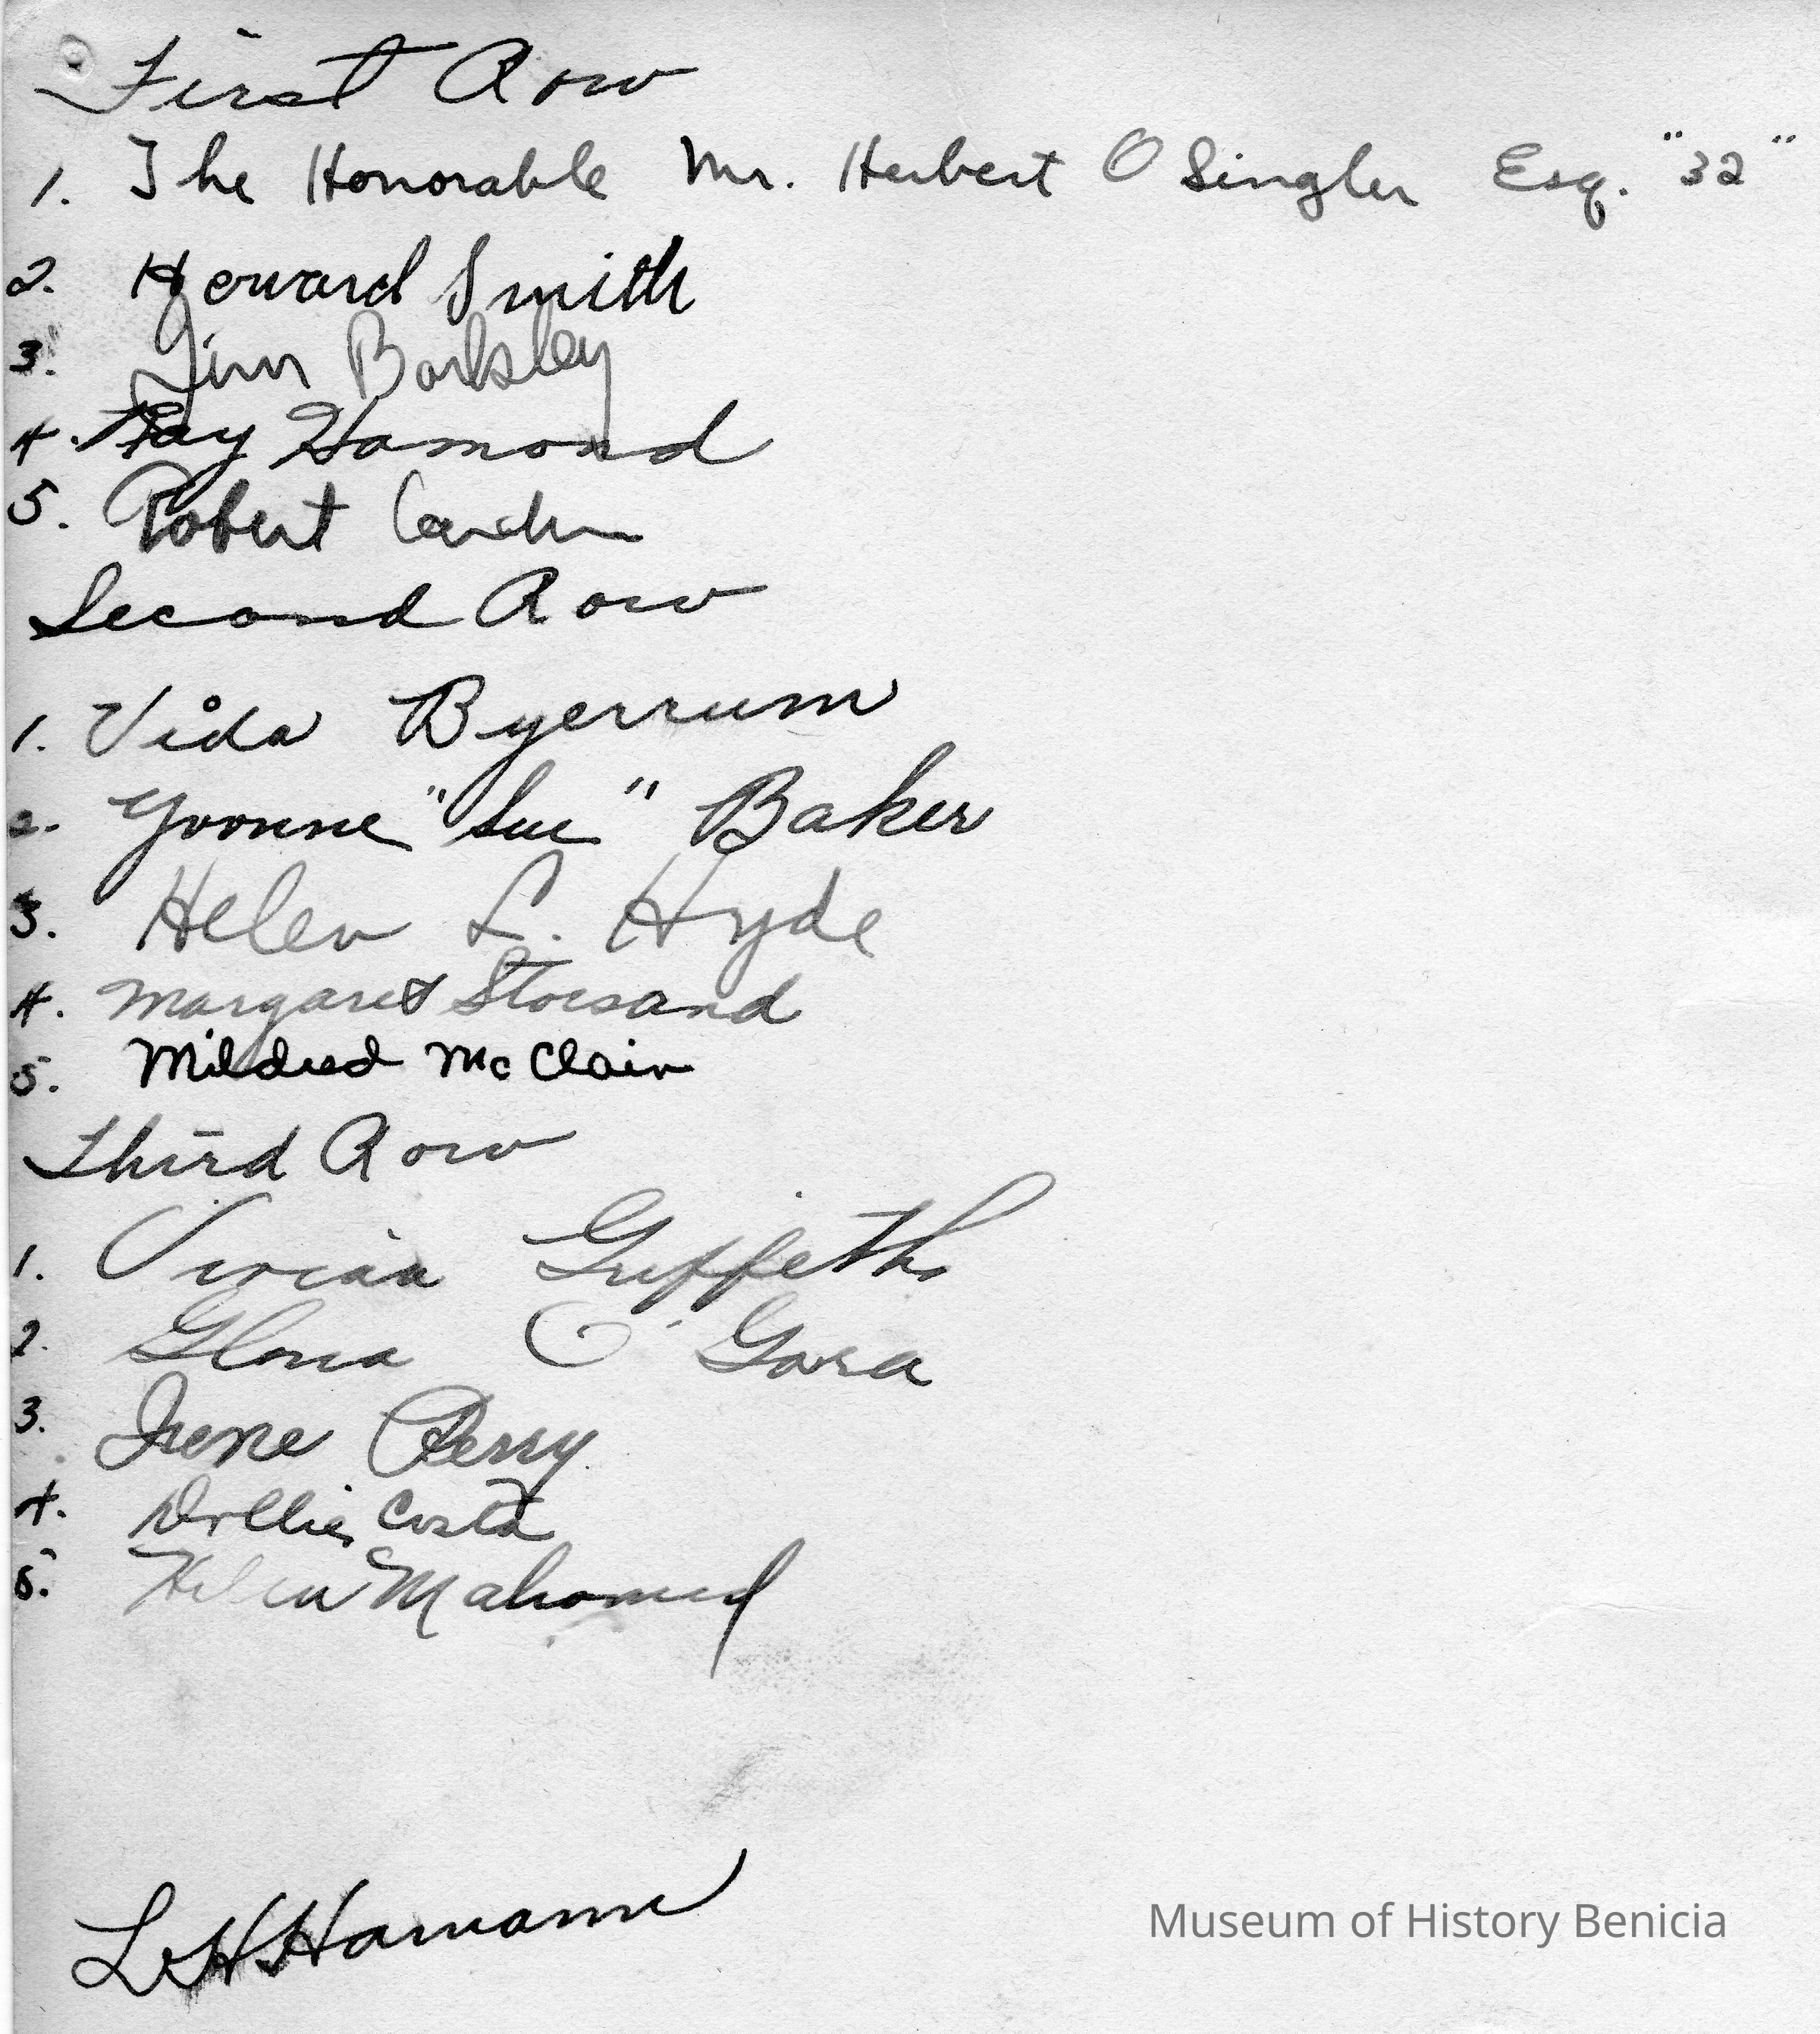 First Row
1. The Honorable Mr. Herbert O Singler Esq. "32"
2. Howard Smith
3. Jim Barksley
4. Ray Hamond
5. Robert
Second Row
1. Vida Byerrum
2. Yvonne "Sue" Baker
3. Helen L. Hyde
4. Margaret Stoesand
5. Mildred McClain
Third Row
1. Vivian Griffeth
2. Gloria O'Gara
3. Irene Perry
4. Dollie Costa
5. Helen Mahomed
L H Hamann
Museum of History Benicia